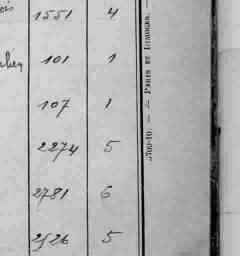 1551 4
101 1
107 1
2274 5
2781 6
2526 5
PARIS ET LIMOGES. —